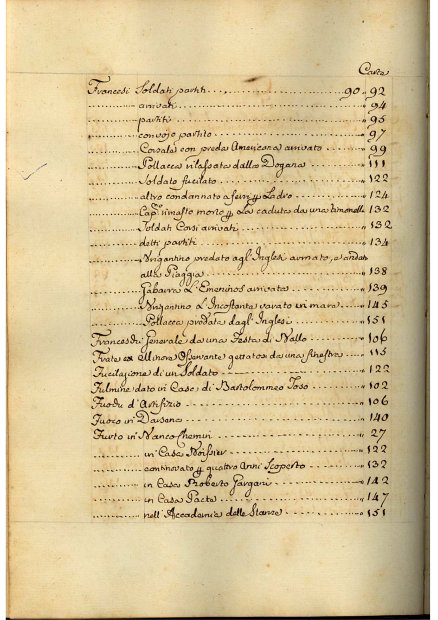 Carte
Francesi Soldati partiti 90 e 92
arrivati 94
partiti 95
convojo partito 97
Corsale con preda Americana arrivato 99
Pollacca rilassata dalla Dogana 111
Soldato fucilato 122
altro condannato a ferri p Ladro 124
Cap.o rimasto morto p La caduta da una timonella 132
Soldati Corsi arrivati 132
detti partiti 134
Brigantino predato agl'Inglesi armato, e andato
alla Piaggia 138
Gabarra L'Emeninos arrivata 139
Brigantino L'Incostante varato in mare 145
Pollacca predata dagl'Inglesi 151
Franceschi Generale da una Festa di Ballo 106
Frate ex Minore Osservante gettatosi da una finestra 115
Fucilazione di un Soldato 122
Fulmine dato in Casa di Bartolommeo Toso 102
Fuochi d'Artifizio 106
Fuoco in Darsena 140
Furto in Banco Chemin 27
in Casa 122
continovato p quattro Anni Scoperto 132
in Casa Roberto Gargari 142
in Casa Pacta 147
nell'Accademia delle Stanze 151